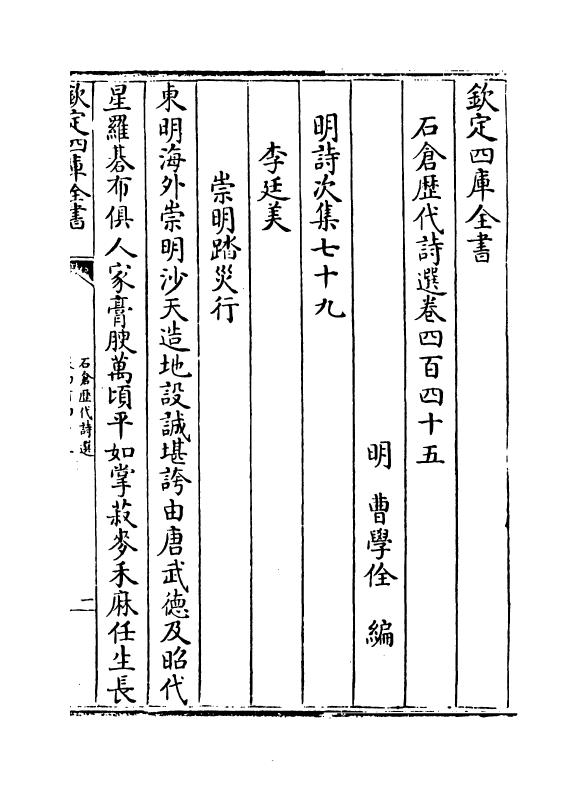 欽定四庫全書
石倉歴代詩選卷四百四十五
明 曹學佺 編
明詩次集七十九
李廷美
崇明踏災行
東明海外崇明沙天造地設誠堪誇由唐武德及昭代
星羅棊布俱人家膏腴萬頃平如掌菽麥禾麻任生長
欽定四庫全書
石倉歴代詩選
一